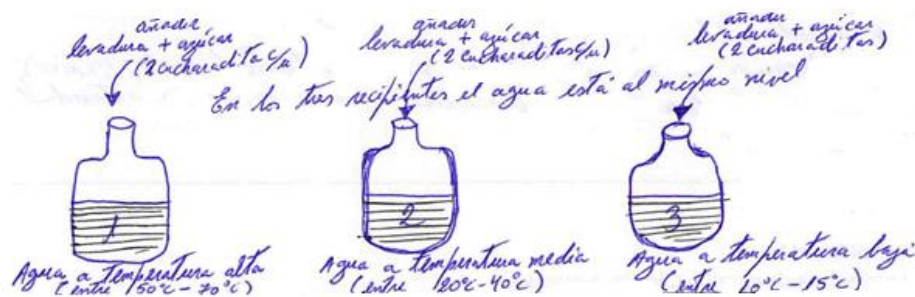 añadir
levadura + azúcar
(2 cucharaditas c/u)
añadir
levadura + azúcar
(2 cucharaditas c/u)
añadir
levadura + azúcar
(2 cucharaditas)
En los tres recipientes el agua está al mismo nivel
1
2
3
Agua a temperatura alta
(entre 50°C - 70°C)
Agua a temperatura media
(entre 20°C - 40°C)
Agua a temperatura baja
(entre 10°C - 15°C)